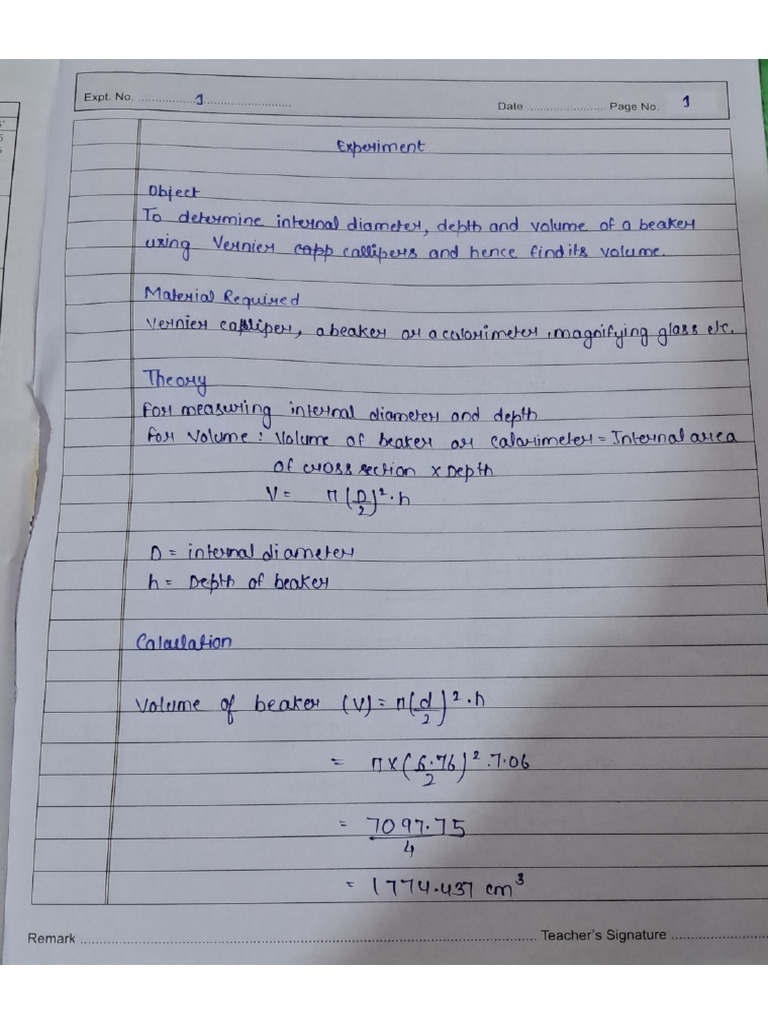 Expt. No. 1
Date Page No. 1
Experiment
Object
To determine internal diameter, depth and volume of a beaker
using Vernier capp callipers and hence find its volume.
Material Required
Vernier calliper, a beaker or a calorimeter, magnifying glass etc.
Theory
For measuring internal diameter and depth
For Volume : Volume of beaker or calorimeter = Internal area
of cross section × Depth
V = π(D/2)²·h
D = internal diameter
h = Depth of beaker
Calculation
Volume of beaker (V) = π(d/2)²·h
= π×(6.76/2)²·7.06
= 7097.75/4
= 1774.437 cm³
Remark Teacher's Signature